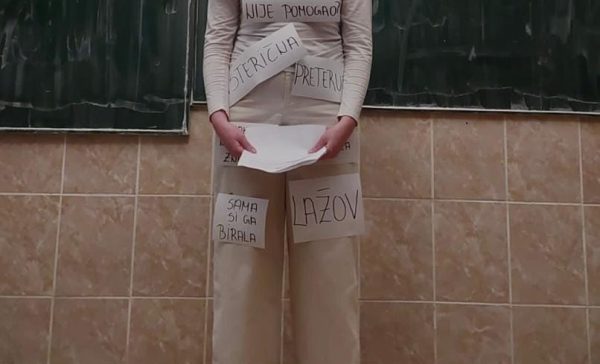 NIJE POMOGAO
STERIČNA
PRETERU
SAMA
SI GA
BIRALA
LAŽOV